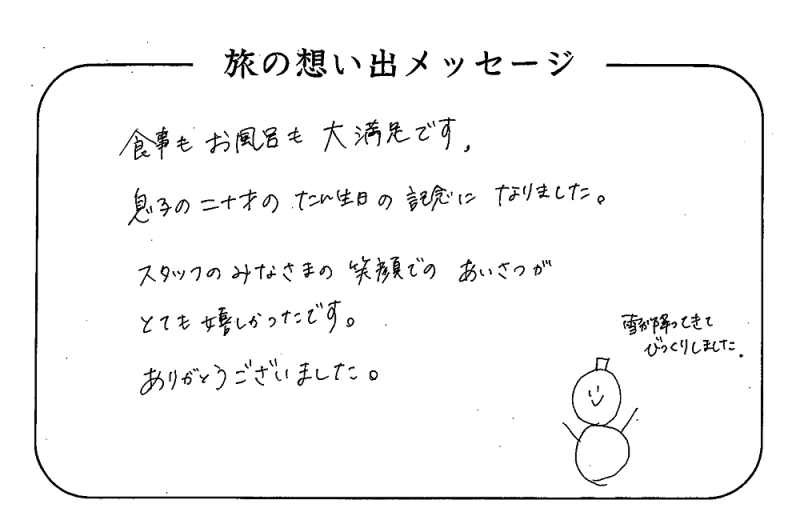 旅の想い出メッセージ
食事も お風呂も 大満足です。
息子の二十才の たん生日の 記念に なりました。
スタッフのみなさまの 笑顔での あいさつが
とても嬉しかったです。
ありがとうございました。
雪が降ってきて
びっくりしました。